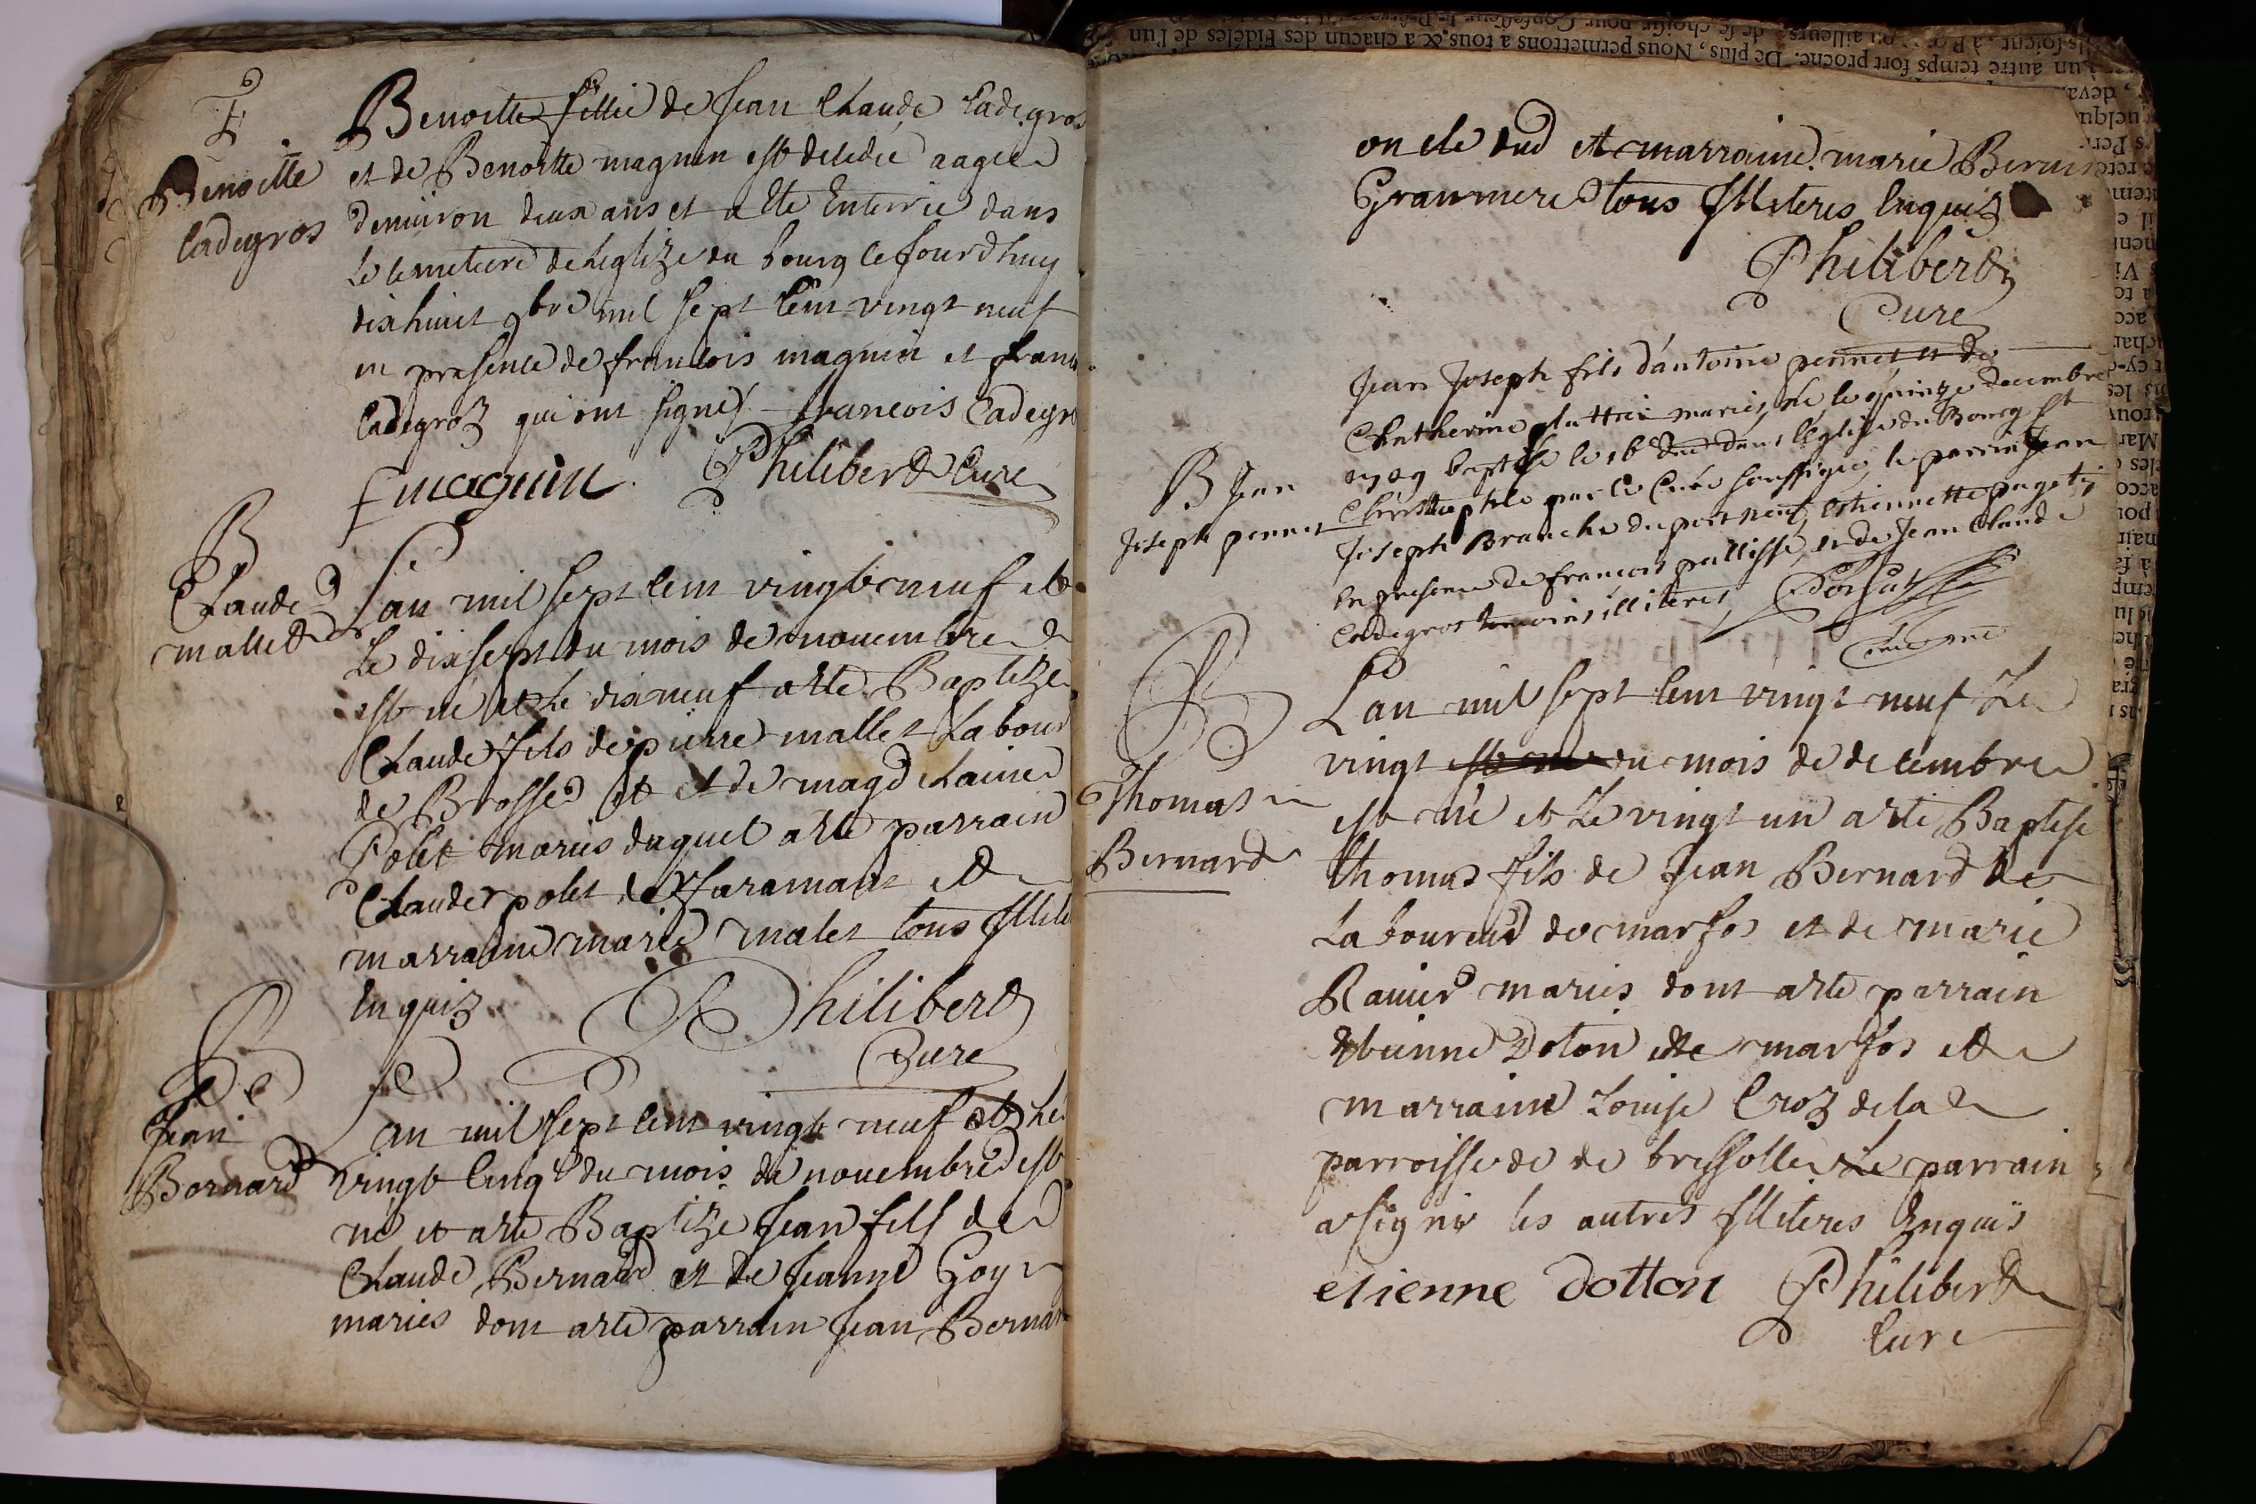 E
Benoitte
Cadegros
Benoitte fillie de Jean Claude Cadegros
et de Benoitte magnin est decedée aagée
denuiron deux ans et a ete Enterrée dans
le cemetiere de leglize du bourg ce jourdhuy
dixhuict 9bre mil sept cent vingt neuf
en presence de francois magnin et franc
Cadegroz qui ont signez francois Cadegro
f magnin Philiberd Curé
B
Claude
mallet
Lan mil sept cent vingt neuf et
le dixsept du mois de nouembre
est né et le dixneuf a ete Baptizé
Claude fils de pierre mallet Labour
de Brosse et de magdelaine
Polet mariés duquel a ete parrain
Claude polet de faramant et
marraine marie malet tous Illite
Enquis
Philiberd
Curé
B
Jean
Bernard
Lan mil sept cent vingt neuf et le
vingt cinq du mois de nouembre est
né et a ete Baptizé Jean fils de
Claude Bernard et de Jeanne Goy
mariés dont a ete parrain Jean Bernar
oncle dud et marraine marie Bernar
Granmere tous Illiteres Enquis
Philiberd
Curé
B Jean
Joseph pennet
Jean Joseph fils d'antoine pennet et de
Catherine mariez, né le quinze decembre
1729 baptisé le 16 dud dans l'Eglise du Bourg St
Christophle par le Curé soussigné, le parrin Jean
Joseph Branche du pont neuf, estiennette puget
En presence de francois pallisse, et de Jean Claude
Cadegros temoins illiteres,
B
Thomas
Bernard
Lan mil sept cent vingt neuf Le
vingt du mois de decembre
est né et Le vingt un a ete Baptisé
thomas fils de Jean Bernard de
Laboureur de marfos et de marie
Rauier mariés dont a ete parrain
Etienne Doton de marfos et
marraine Louise Croz de la
parroisse de de bressolle Le parrain
a signé les autres Illiteres Enquis
etienne dotton Philiberd
Curé